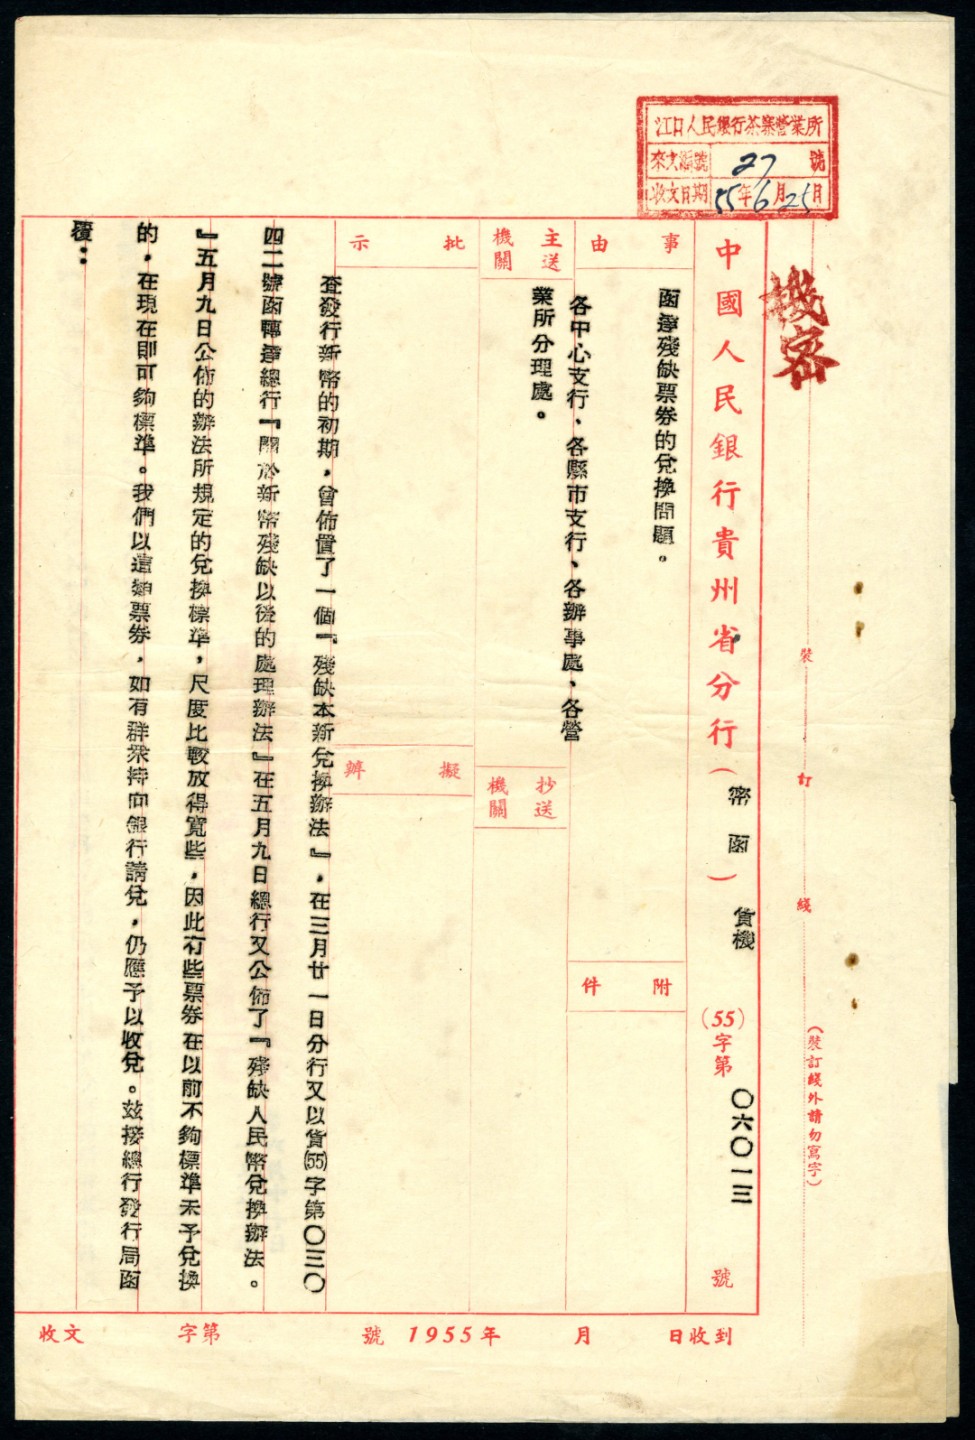 江口人民銀行茶寨營業所
來文編號 27 號
收文日期 55年6月25日
機密
裝 訂 綫
(裝訂綫外請勿寫字)
中國人民銀行貴州省分行(密函) 貨機(55)字第〇六〇一三號
事由
函達殘缺票券的兌換問題。
附件
主送機關
各中心支行、各縣市支行、各辦事處、各營
業所分理處。
抄送機關
批示
擬辦
查發行新幣的初期,曾佈置了一個『殘缺本新兌換辦法』,在三月廿一日分行又以貨(55)字第〇三〇
四二號函轉達總行『關於新幣殘缺以後的處理辦法』在五月九日總行又公佈了『殘缺人民幣兌換辦法。
』五月九日公佈的辦法所規定的兌換標準,尺度比較放得寬些,因此有些票券在以前不夠標準未予兌換
的,在現在即可夠標準。我們以這類票券,如有群眾持向銀行請兌,仍應予以收兌。茲接總行發行局函
覆:
收文 字第 號 1955年 月 日收到